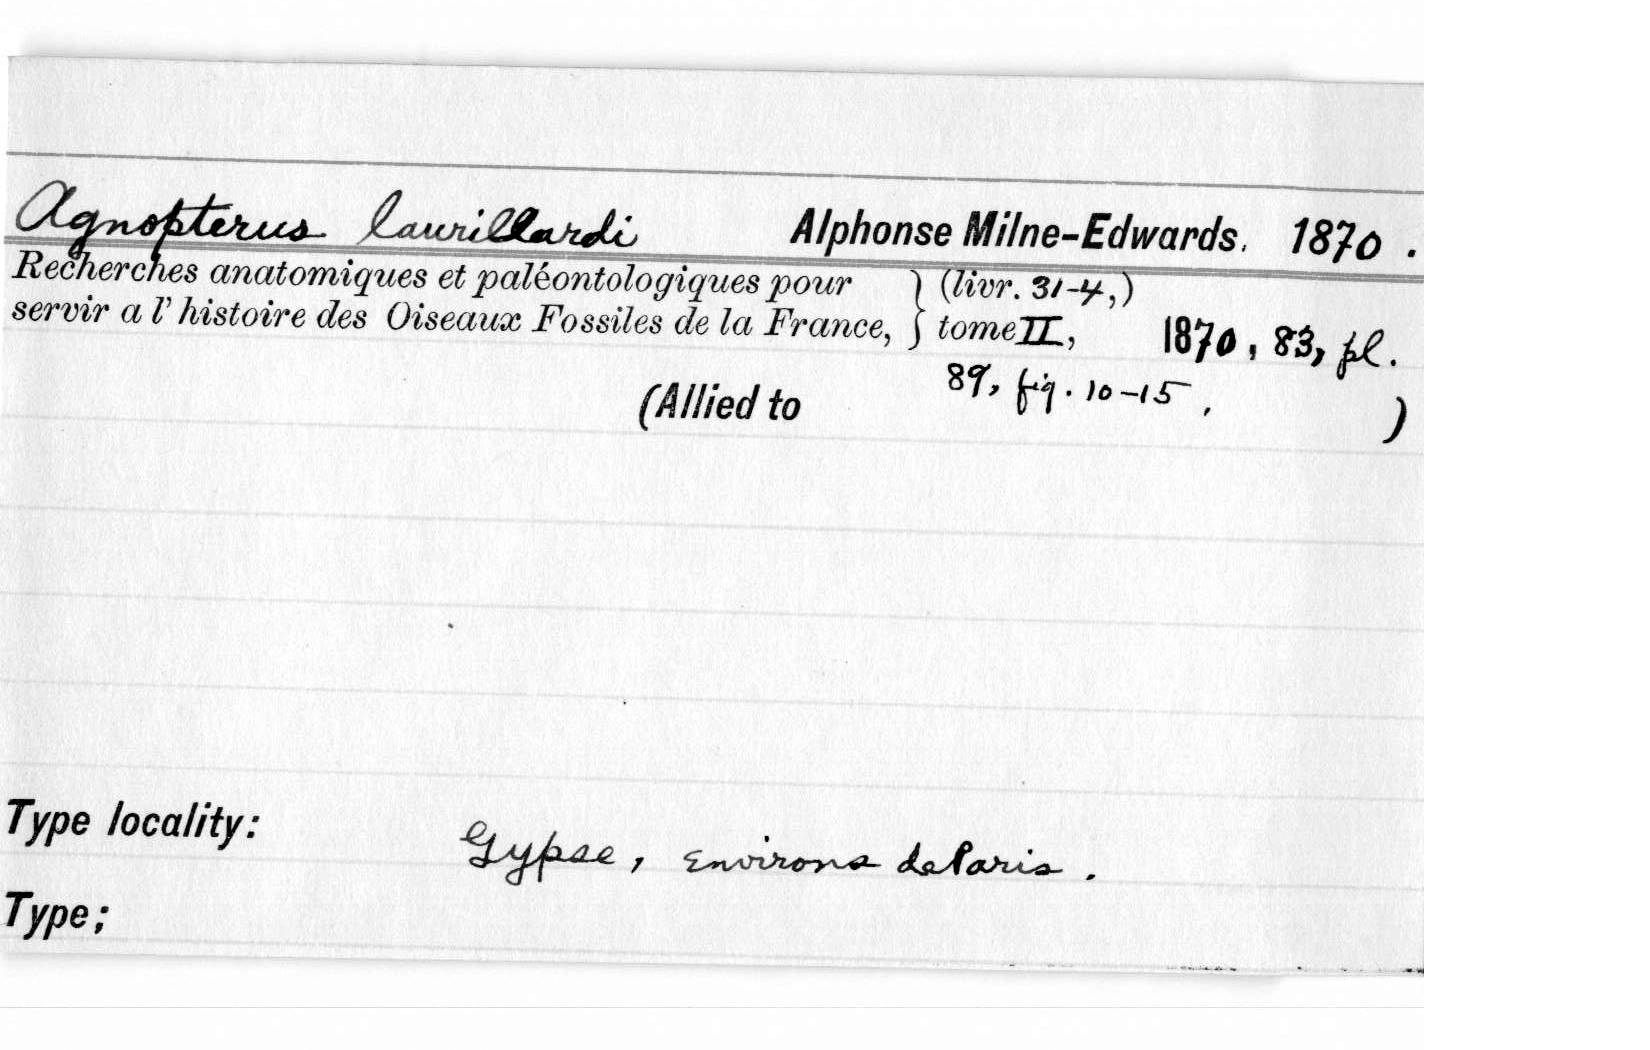 Agnopterus laurillardi Alphonse Milne-Edwards. 1870.
Recherches anatomiques et paléontologiques pour } (livr. 31-4,)
servir a l'histoire des Oiseaux Fossiles de la France, } tome II, 1870, 83, pl.
89, fig. 10-15.
(Allied to )
Type locality: Gypse, Environs de Paris.
Type;